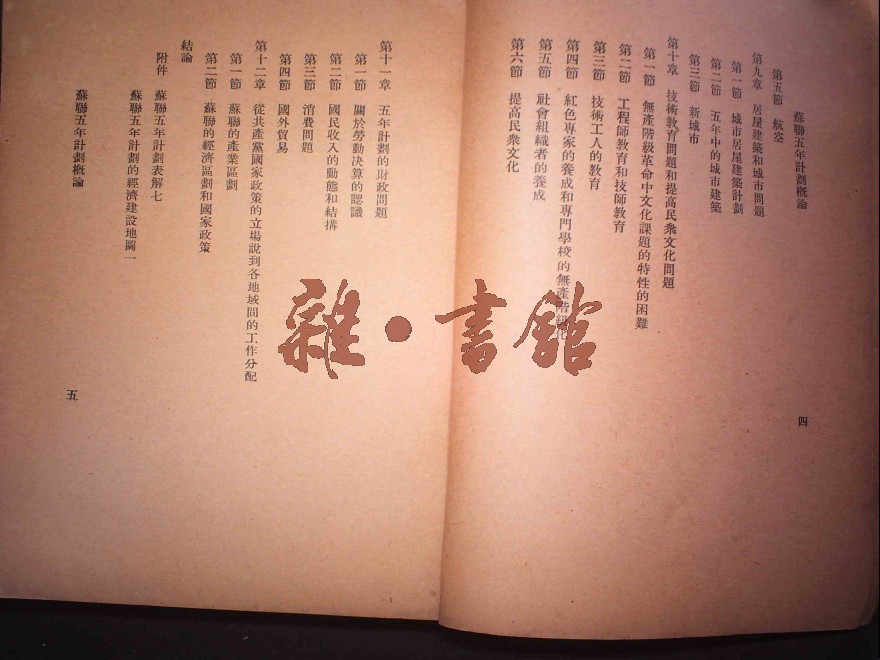 蘇聯五年計劃概論
第五節 航空
第九章 居屋建築和城市問題
第一節 城市居屋建築計劃
第二節 五年中的城市建築
第三節 新城市
第十章 技術教育問題和提高民衆文化問題
第一節 無產階級革命中文化課題的特性的困難
第二節 工程師教育和技師教育
第三節 技術工人的教育
第四節 紅色專家的養成和專門學校的無產階級化
第五節 社會組織者的養成
第六節 提高民衆文化
四
第十一章 五年計劃的財政問題
第一節 關於勞動決算的認識
第二節 國民收入的動態和結搆
第三節 消費問題
第四節 國外貿易
第十二章 從共產黨國家政策的立場說到各地域間的工作分配
第一節 蘇聯的產業區劃
第二節 蘇聯的經濟區劃和國家政策
結論
附件 蘇聯五年計劃表解七
蘇聯五年計劃的經濟建設地圖一
蘇聯五年計劃概論
五
雜·書館